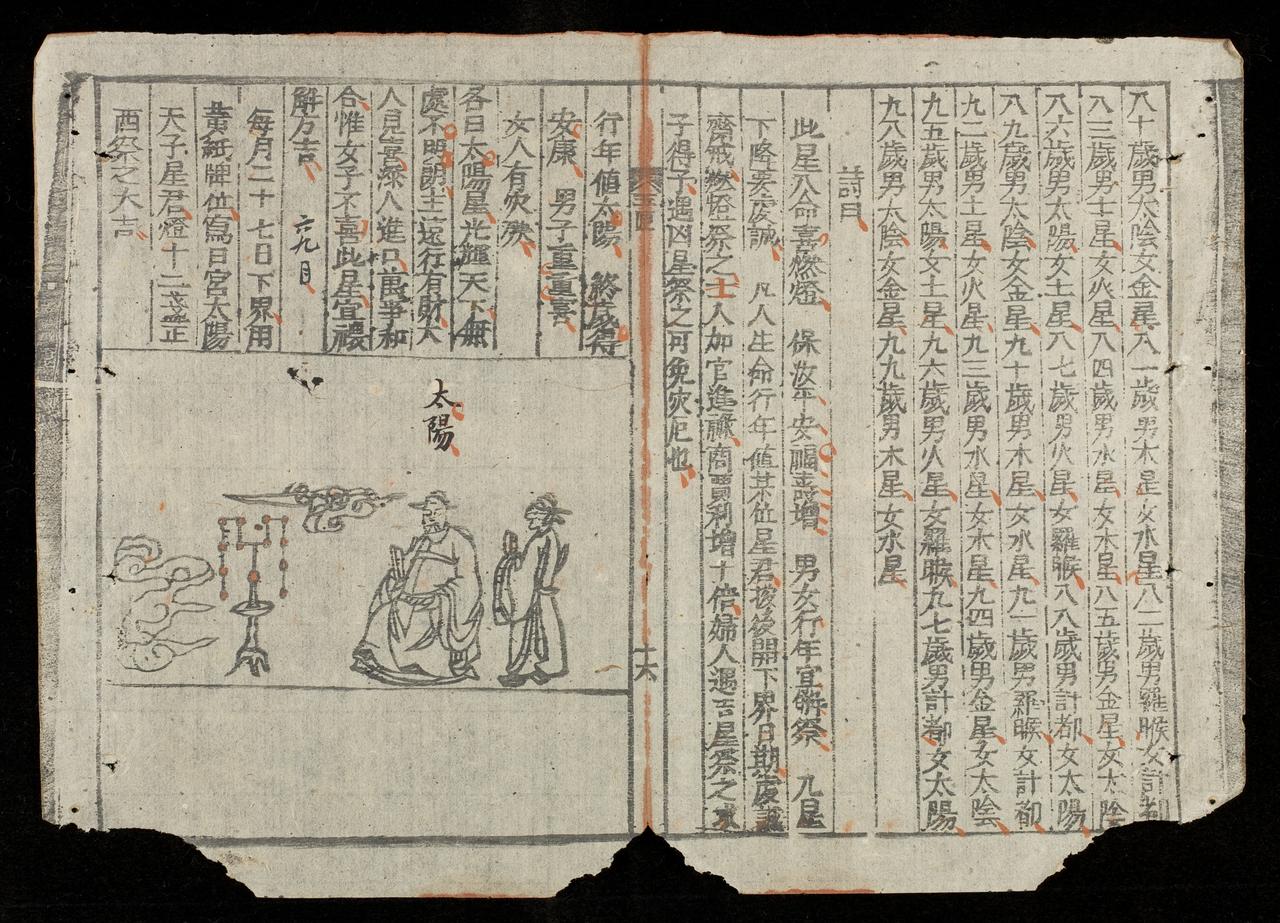 八十歲男太陰女金星八一歲男木星女水星八二歲男羅睺女計都
八三歲男土星女火星八四歲男水星女木星八五歲男金星女太陰
八六歲男太陽女土星八七歲男火星女羅睺八八歲男計都女太陽
八九歲男太陰女金星九十歲男木星女水星九一歲男羅睺女計都
九二歲男土星女火星九三歲男水星女木星九四歲男金星女太陰
九五歲男太陽女土星九六歲男火星女羅睺九七歲男計都女太陽
九八歲男太陰女金星九九歲男木星女水星
詩曰
此星八命喜燃燈 保汝平安福壽增 男女行年宜解祭 九星
下降要虔誠 凡人生命行年值某位星君按後開下界日期虔誠
齋戒燃燈祭之士人加官進祿商賈利增十倍婦人遇吉星祭之求
子得子遇凶星祭之可免灾厄也
十六
行年值太陽 終歲得
安康 男子重重喜
女人有灾殃
各曰太陽星光輝天下無
處不明朗主遠行有財大
人見喜添人進口萬事和
合惟女子不喜此星宜禳
解方吉 六九月
每月二十七日下界用
黃紙牌位寫日宮太陽
天子星君燈十二盞正
西祭之大吉
太陽